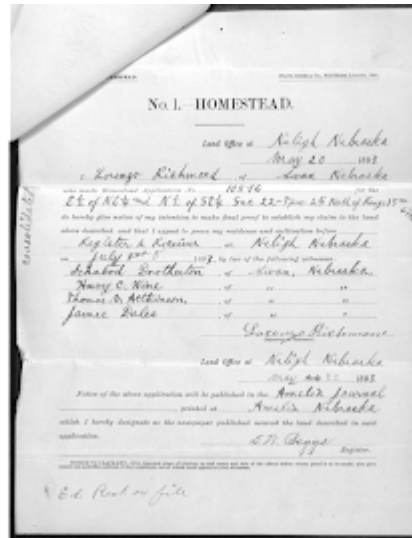 No. 1.—HOMESTEAD.
Land Office at Neligh Nebraska
May 20 188
I, Lorenzo Richmond of Swan Nebraska
who made Homestead Application No. 10816 for the
E½ of NE¼ and N½ of SE¼ Sec 22 Twp 25 North of Range 15
do hereby give notice of my intention to make final proof to establish my claim to the land
above described, and that I expect to prove my residence and cultivation before
Register & Receiver at Neligh Nebraska
on July 188 by two of the following witnesses:
Ichabod Brotherton of Swan, Nebraska,
Harry C. Wine of " "
Thomas Atkinson, of " "
James Dales of " "
Lorenzo Richmond
Land Office at Neligh Nebraska
May 188
Notice of the above application will be published in the Amelia Journal
printed at Amelia Nebraska
which I hereby designate as the newspaper published nearest the land described in said
application.
Beggs
Register.
consolidated
Ed. Rect on file